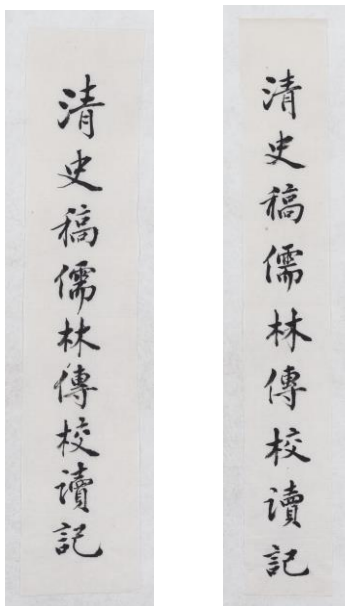 清史稿儒林傳校讀記
清史稿儒林傳校讀記